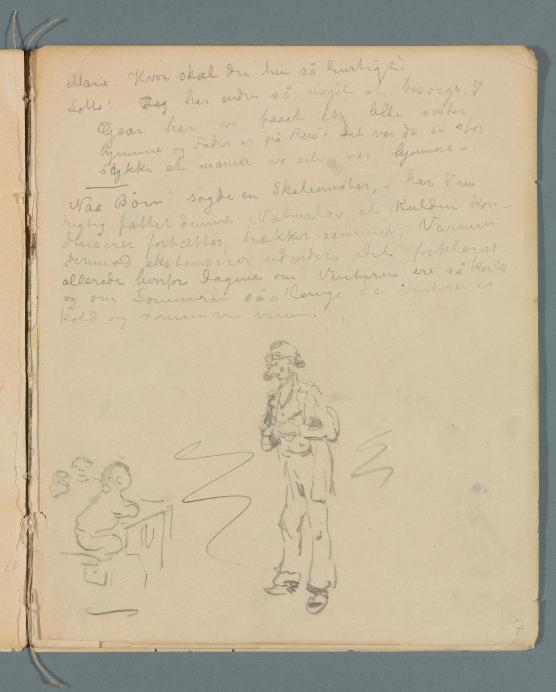 Marie. Hvor skal du hen så hurtigt?
Lotte! Jeg har endnu så meget at besørge. I
Gaar har vi faaet en lille søster
hjemme og Fader er på Reise det var da en stor
Stykke at mama selv var hjemme.
"Naa Børn" sagde en Skolemester, har I nu
rigtig fattet denne Naturlov, at Kulden kon-
denserer fortætter, trækker sammen, Varmen
derimod ekstenserer udvider. Det forklarer
allerede hvorfor Dagene om Vinteren ere så korte
og om Sommeren så lange da vinteren er
kold og sommeren varm.
7